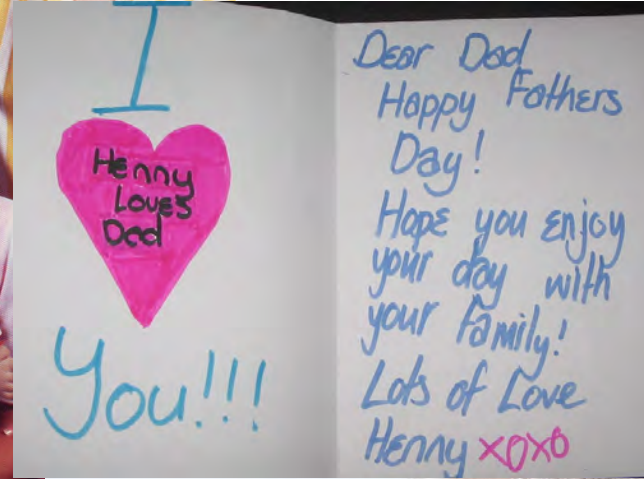 I
Henny
Loves
Dad
You!!!
Dear Dad
Happy Fathers
Day!
Hope you enjoy
your day with
your family!
Lots of Love
Henny xoxo